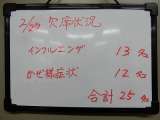 2/25 欠席状況
インフルエンザ 13名
かぜ様症状 12名
合計25名